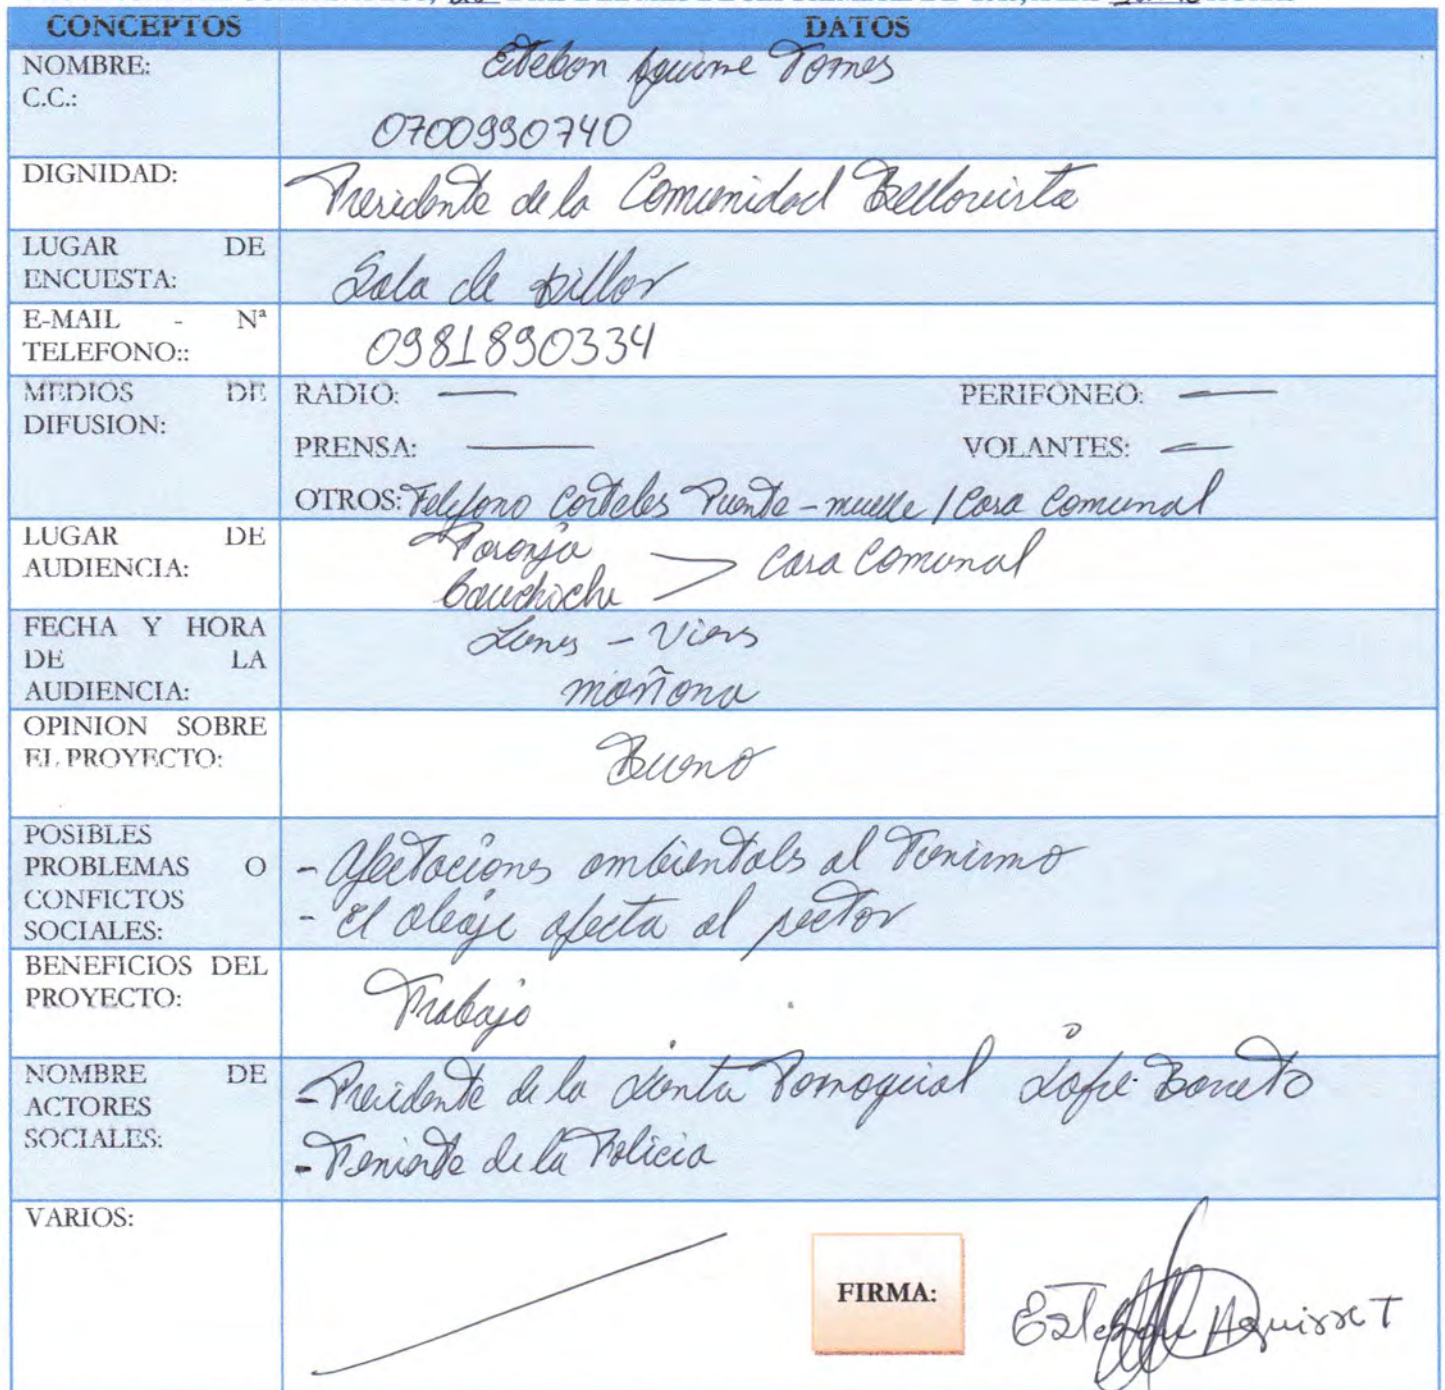 CONCEPTOS DATOS
NOMBRE: Esteban Aguirre Tomes
C.C.:
0700990740
DIGNIDAD: Presidente de la Comunidad Bellavista
LUGAR DE
ENCUESTA: Sala de
E-MAIL - Nª
TELEFONO:: 0981890334
MEDIOS DE
DIFUSION:
RADIO: — PERIFONEO: —
PRENSA: — VOLANTES: —
OTROS: Telefono Carteles Puente - muelle / Casa Comunal
LUGAR DE
AUDIENCIA:
Casa Comunal
FECHA Y HORA
DE LA
AUDIENCIA:
Lunes - Viers
mañana
OPINION SOBRE
EL PROYECTO: Bueno
POSIBLES
PROBLEMAS O
CONFICTOS
SOCIALES:
- Afectaciones ambientals al Turismo
- El oleaje afecta al sector
BENEFICIOS DEL
PROYECTO: Trabajo
NOMBRE DE
ACTORES
SOCIALES:
- Presidente de la Junta Parroquial
- Teniente de la Policia
VARIOS:
FIRMA: Esteban Aguirre T